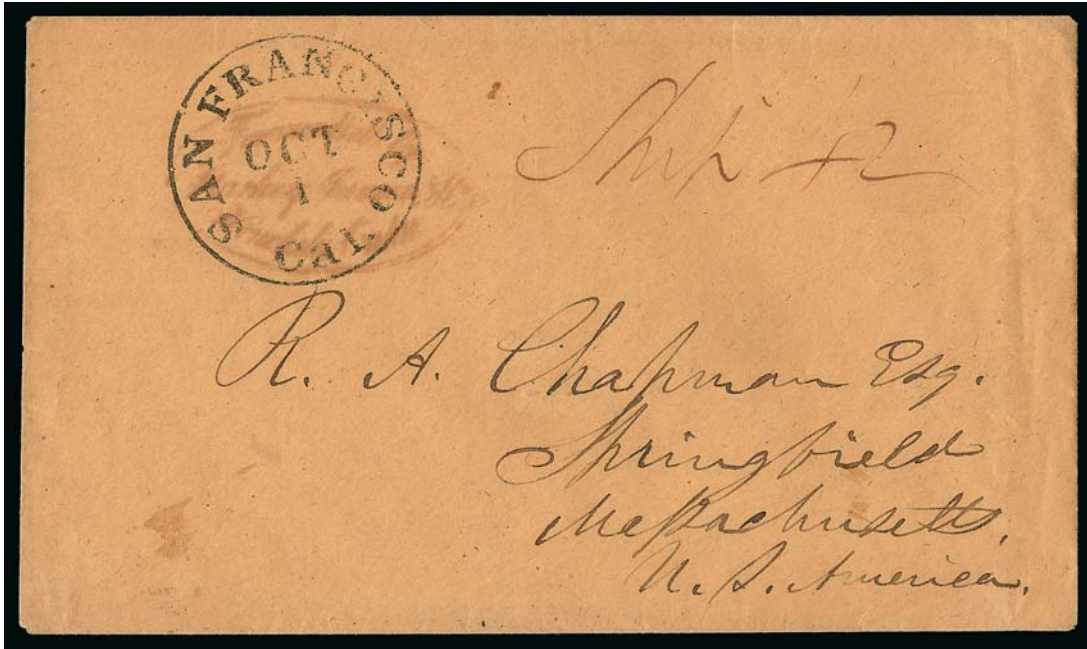 SAN FRANCISCO
OCT
1
Cal.
Ship 42
R. A. Chapman Esq.
Springfield
Massachusetts,
U. S. America.